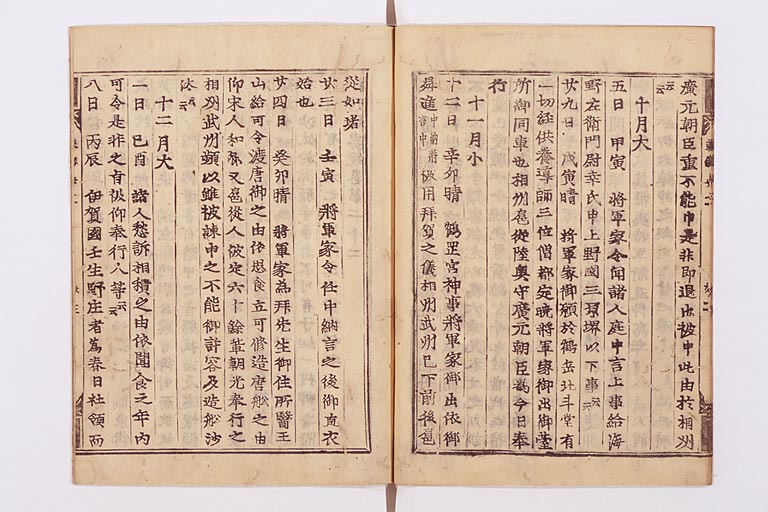 廣元朝臣重不能申是非即退出被申此由於相州
云云
十月大
五日 甲寅 將軍家令聞諸人庭中言上事給海
野左衛門尉幸氏申上野國三原堺以下事云云
廿九日 戊寅晴 將軍家御願於鶴岳北斗堂有
一切經供養導師三位僧都定曉將軍家御出御臺
所御同車也相州扈從陸奥守廣元朝臣為今日奉
行
十一月小
十二日 辛卯晴 鶴罡宮神事將軍家御出依御
昇進中納言中將被用拜賀之儀相州武州已下前後扈
從如堵
廿三日 壬寅 將軍家令任中納言之後御直衣
始也
廿四日 癸卯晴 將軍家為拜先生御住所醫王
山給可令渡唐御之由依思食立可修造唐舩之由
仰宋人和卿又扈從人被定六十餘輩朝光奉行之
相州武州頻以雖被諫申之不能御許容及造舩沙
汰云云
十二月大
一日 己酉 諸人愁訴相積之由依聞食之年内
可令是非之旨被仰奉行人等云云
八日 丙辰 伊賀國壬生野庄者為春日社領而